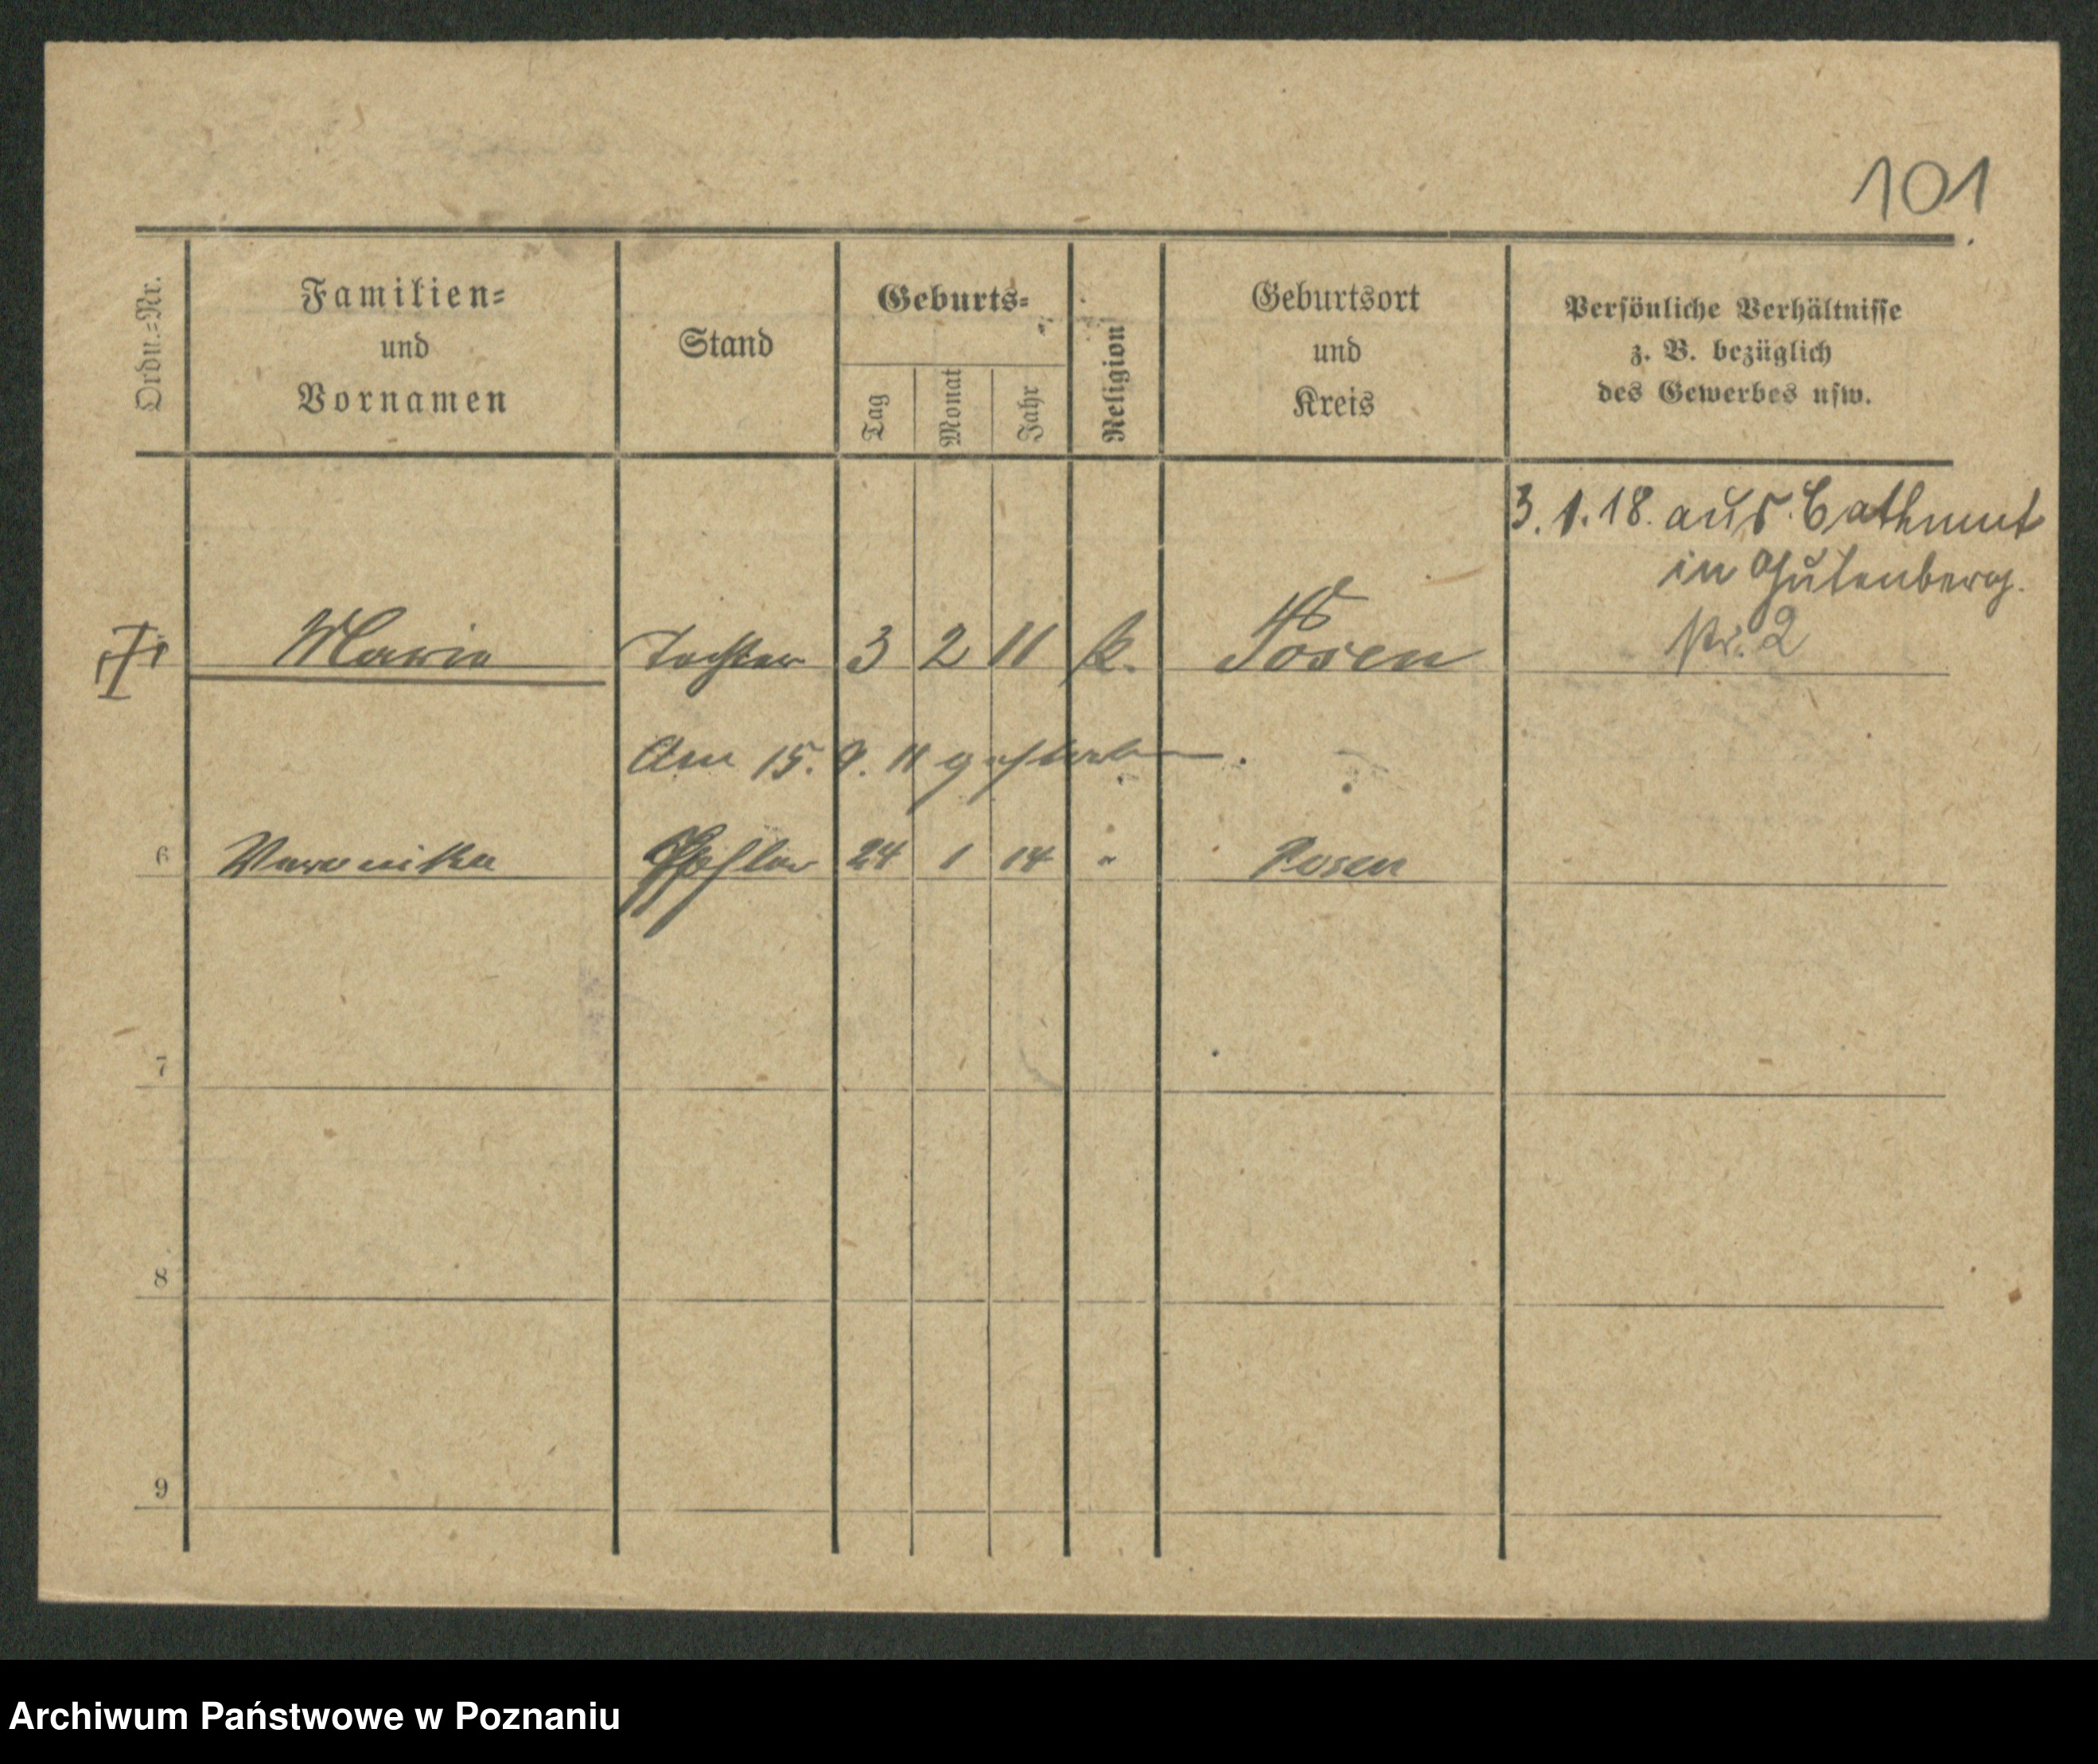 101
Ordn.=Nr.
Familien=
und
Vornamen
Stand
Geburts=
Tag
Monat
Jahr
Religion
Geburtsort
und
Kreis
Persönliche Verhältnisse
z. B. bezüglich
des Gewerbes usw.
3. 1. 18. aus
in Gutenberg.
Nr. 2
Marie Tochter 3 2 11 k. Posen
Am 15. 9. 11 gestorben.
6 Veronika 24 1 14 " Posen
7
8
9
Archiwum Państwowe w Poznaniu